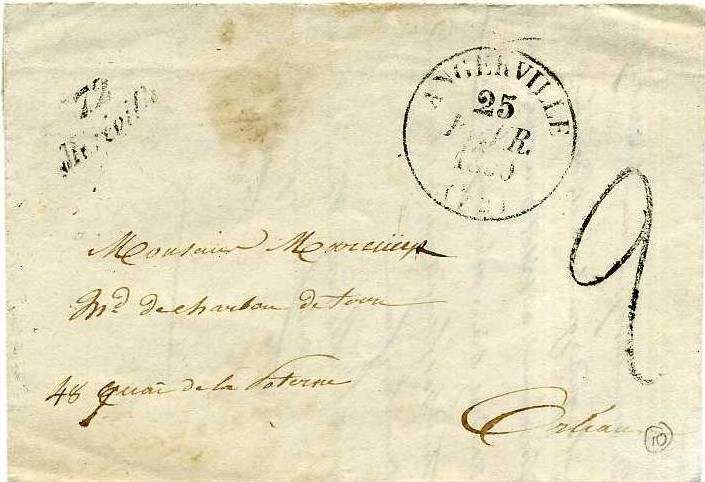 72
Méréville
ANGERVILLE
25
FEVR.
(72)
2
Monsieur
Md de charbon de terre
48 quai de la Poterne
Orléans
10